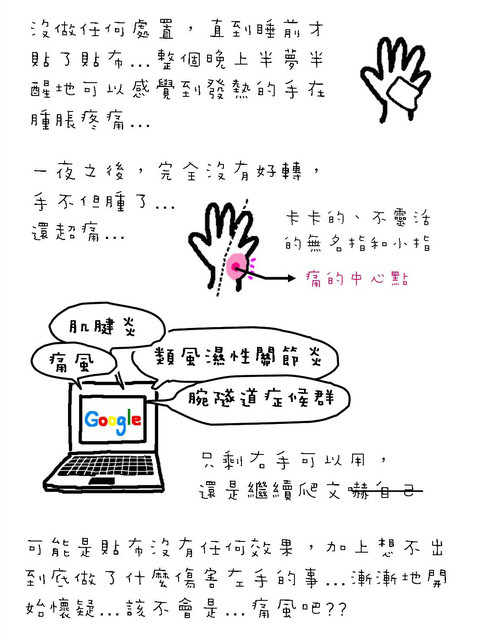 沒做任何處置，直到睡前才
貼了貼布...整個晚上半夢半
醒地可以感覺到發熱的手在
腫脹疼痛...
一夜之後，完全沒有好轉，
手不但腫了...
還超痛...
卡卡的、不靈活
的無名指和小指
痛的中心點
肌腱炎
痛風
類風濕性關節炎
腕隧道症候群
Google
只剩右手可以用，
還是繼續爬文嚇自己
可能是貼布沒有任何效果，加上想不出
到底做了什麼傷害左手的事...漸漸地開
始懷疑...該不會是...痛風吧??